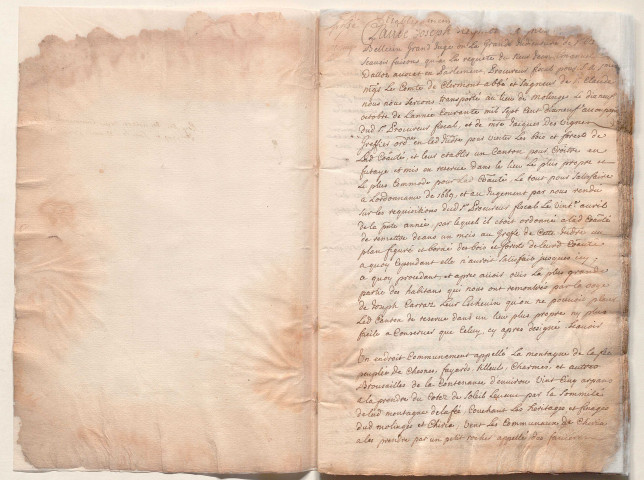 Claude Joseph
Bellerin Grand Juge en la Grande Judicature de St Claude
scavoir faisons, qu'a la requeste du sieur Jean
Dalloz avocat en Parlement, Procureur fiscal
mgr Le Comte de Clermont abbé et seigneur de St Claude
nous nous serions transporté au lieu du molinges Le dix neuf
octobre de L'année Courante mil sept cent dix neuf accompagné
dud. sr Procureur fiscal, et de mtre Jacques Des vignes
Greffier ordre en lad. Judre pour visiter Les bois et forets de
Lad Coaulté, et leur etablir un Canton pour Croitre en
futaye et mis en reserve dans le lieu Le plus propre et
Le plus Commode pour Lad Coaulté, Le tout pour satisfaire
a Lordonnance de 1669, et au Jugement par nous rendu
sur les requisitions dud. sr Procureur fiscal Le vingt avril
de la pnte année, par lequel il etoit ordonné a lad Coaulté
de remettre dans un mois au Greffe de Cette Judre un
plan figuré et borné des bois et forets de lad Coaulté
a quoy Cependant elle n'auroit satisfait jusques icy;
a quoy procedant, et apres avoir ouis La plus grande
partie des habitans qui nous ont remontrés par la voye
de Joseph Carraz Leur Echevin qu'on ne pouvoit placer
Led Canton de reserve dans un lieu plus propre et plus
facile a Conserver que Celuy cy apres designé scavoir
Un endroit Communement appellé La montagne de la fée
peuplée de Chesnes, fayards, tilleuls, Charmes, et autres
Brousailles de la Contenance d'environ vint Cinq arpans
a la prendre du Coté de Soleil Levant par la Sommité
de lad montagne de la fée, Couchant Les heritages et finages
dud molinges et Chiria, vent Les Communaux de Chiria
a les prendre par un petit rocher appellé